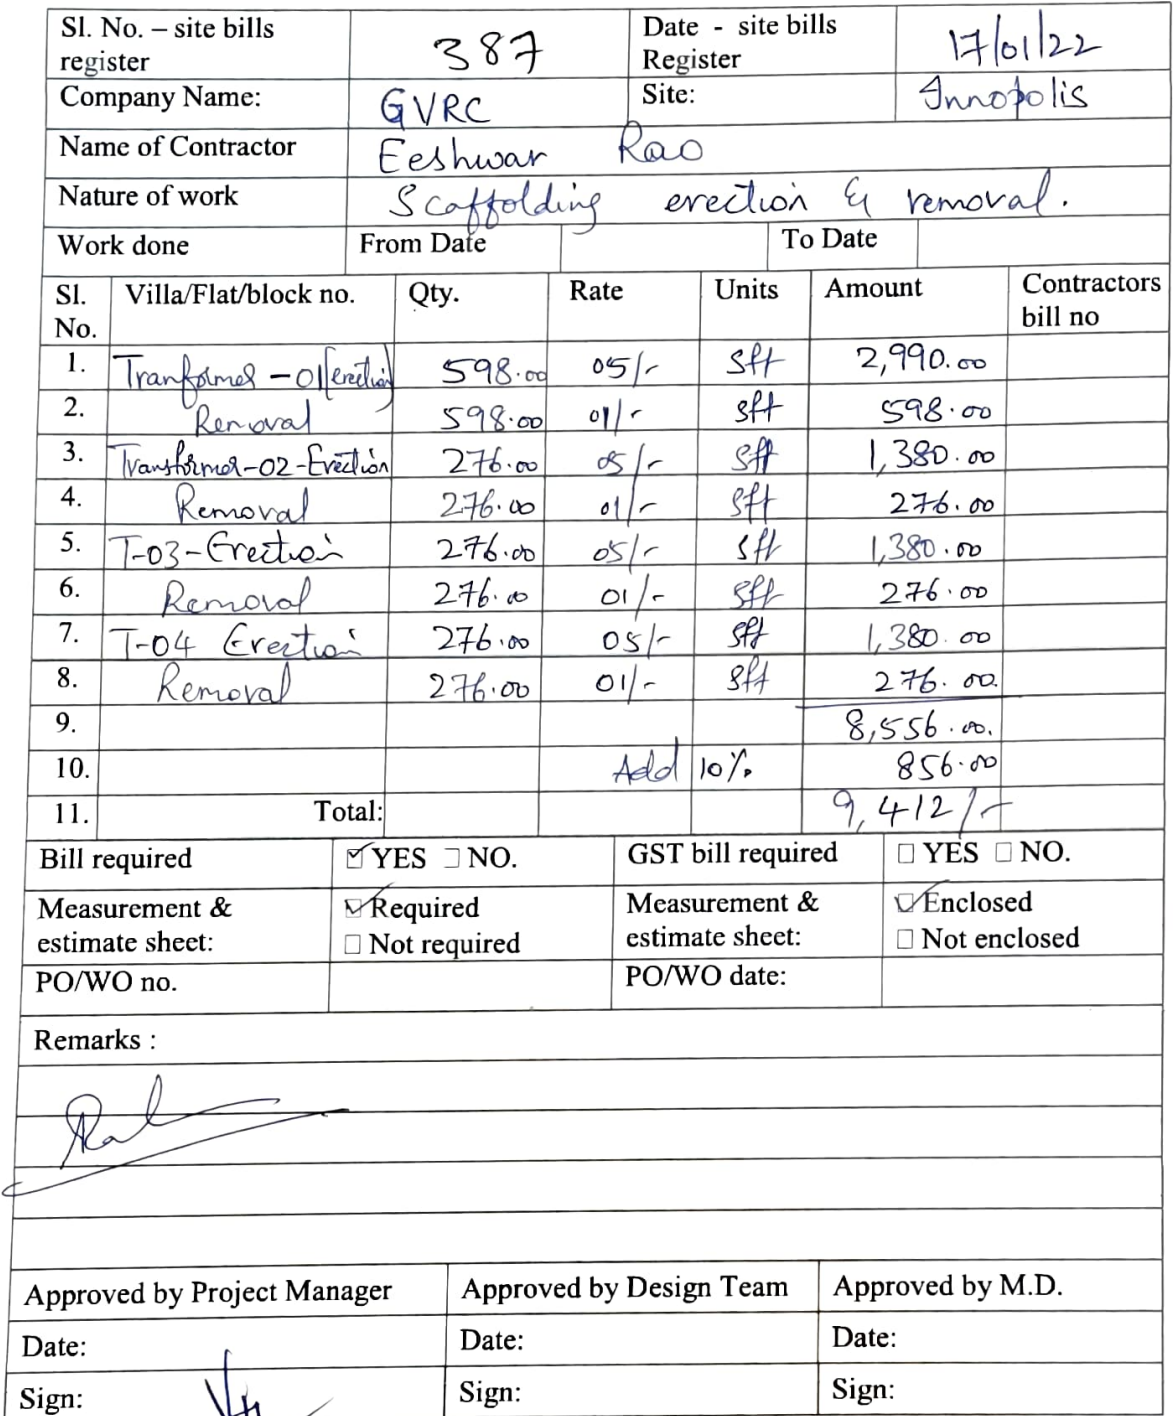 Sl. No. – site bills register 387 Date - site bills Register 17/01/22
Company Name: GVRC Site: Innopolis
Name of Contractor Eeshwar Rao
Nature of work Scaffolding erection & removal.
Work done From Date To Date
Sl. No. Villa/Flat/block no. Qty. Rate Units Amount Contractors bill no
1. Tranformer - 01 [erection] 598.00 05/- sft 2,990.00
2. Removal 598.00 01/- sft 598.00
3. Transformer-02-Erection 276.00 05/- sft 1,380.00
4. Removal 276.00 01/- sft 276.00
5. T-03-Erection 276.00 05/- sft 1,380.00
6. Removal 276.00 01/- sft 276.00
7. T-04 Erection 276.00 05/- sft 1,380.00
8. Removal 276.00 01/- sft 276.00.
9. 8,556.00.
10. Add 10% 856.00
11. Total: 9,412/-
Bill required ☑ YES ☐ NO. GST bill required ☐ YES ☐ NO.
Measurement & estimate sheet: ☑ Required ☐ Not required Measurement & estimate sheet: ☑ Enclosed ☐ Not enclosed
PO/WO no. PO/WO date:
Remarks :
Approved by Project Manager Approved by Design Team Approved by M.D.
Date: Date: Date:
Sign: Sign: Sign: